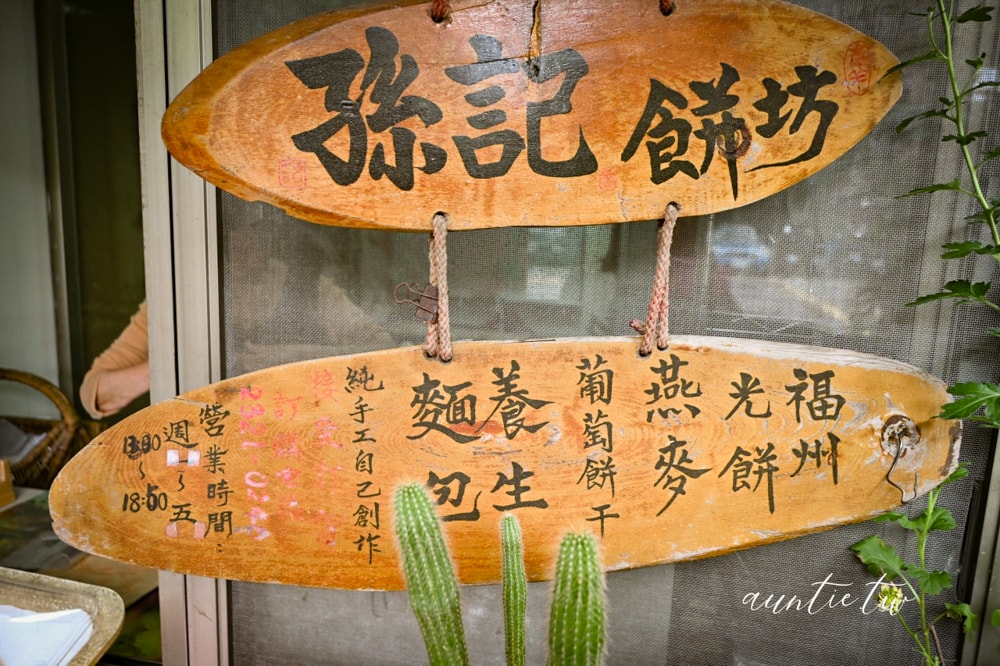 孫記 餅坊
福州
光餅
燕麥
葡萄餅干
養生
麵包
純手工自己創作
營業時間：
週一～五
18:00
auntie tw